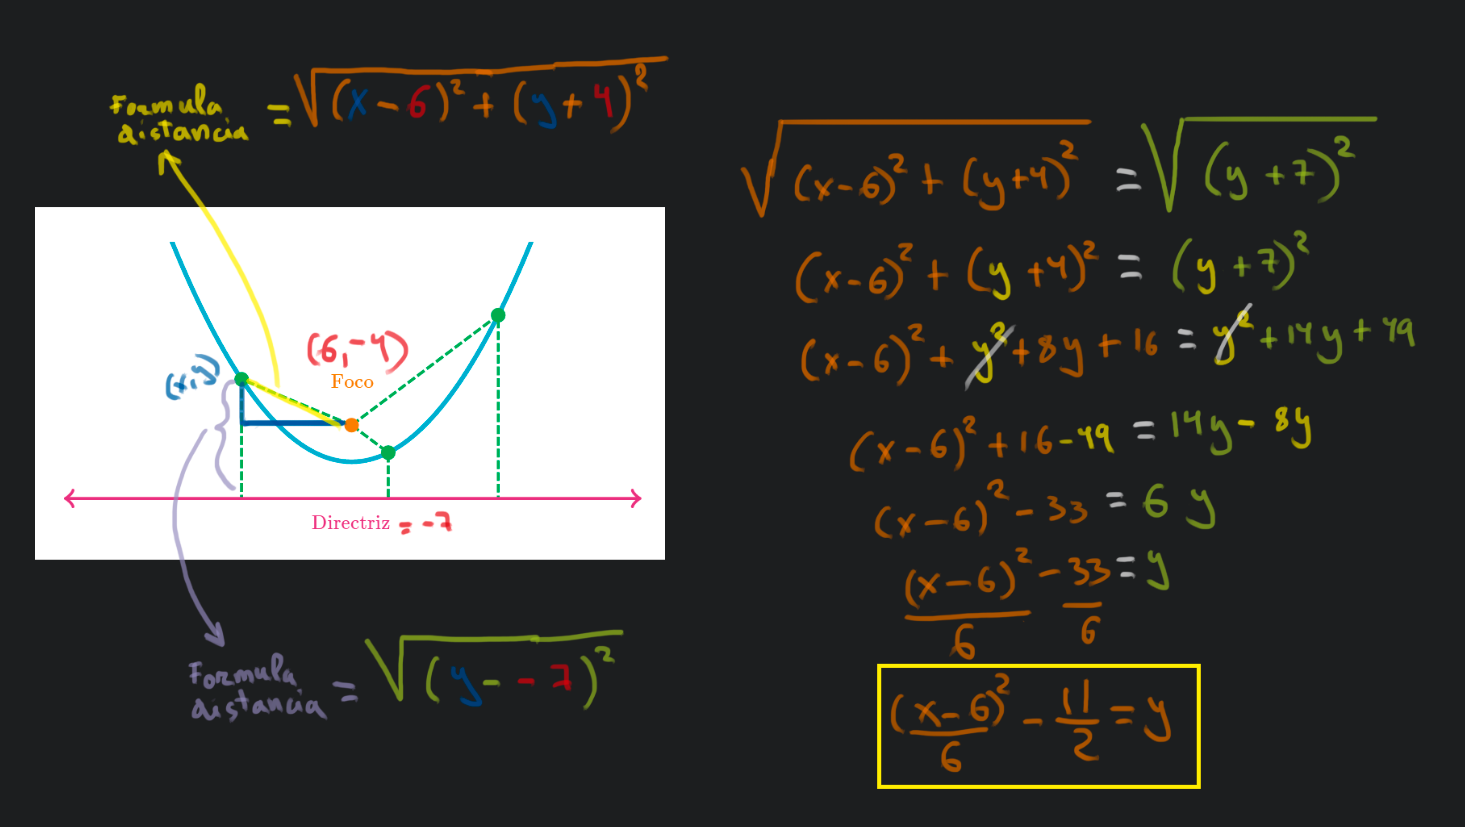 Formula distancia = √((x-6)² + (y+4)²)
(6,-4)
(x,y)
Foco
Directriz = -7
Formula distancia = √((y--7)²)
√((x-6)² + (y+4)²) = √((y+7)²)
(x-6)² + (y+4)² = (y+7)²
(x-6)² + y² + 8y + 16 = y² + 14y + 49
(x-6)² + 16 - 49 = 14y - 8y
(x-6)² - 33 = 6y
(x-6)²/6 - 33/6 = y
(x-6)²/6 - 11/2 = y